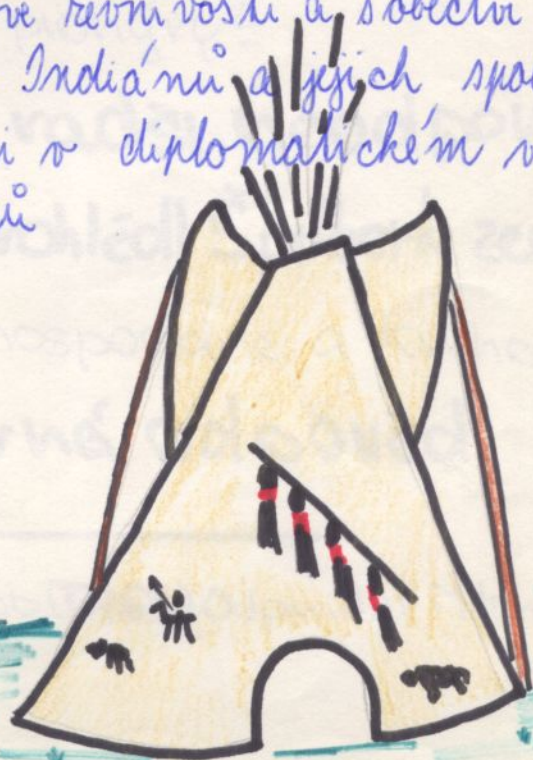 ve řevnivosti a sobectví
Indiánů a jejich spo
i v diplomatickém v
ů